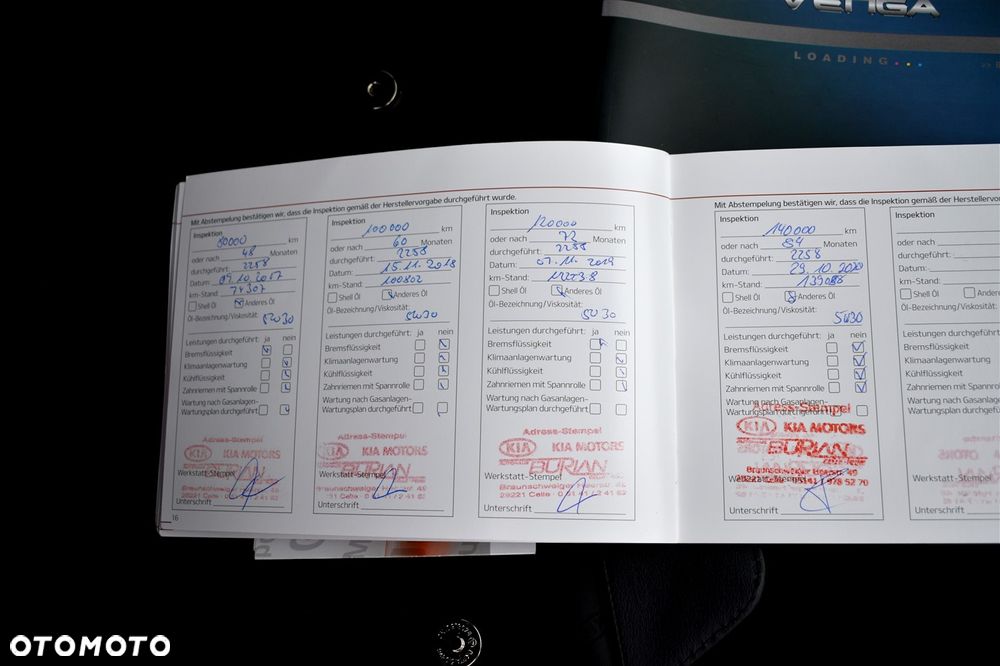 VENGA
LOADING...
Mit Abstempelung bestätigen wir, dass die Inspektion gemäß der Herstellervorgabe durchgeführt wurde.
Inspektion
80000 km
oder nach 48 Monaten
durchgeführt: 2258
Datum: 09.10.2017
km-Stand: 74307
Shell Öl Anderes Öl
Öl-Bezeichnung/Viskosität:
5W30
Leistungen durchgeführt: ja nein
Bremsflüssigkeit
Klimaanlagenwartung
Kühlflüssigkeit
Zahnriemen mit Spannrolle
Wartung nach Gasanlagen-
Wartungsplan durchgeführt
Adress-Stempel
KIA KIA MOTORS
BURIAN
Werkstatt-Stempel
Unterschrift
16
Inspektion
100000 km
oder nach 60 Monaten
durchgeführt: 2258
Datum: 15.11.2018
km-Stand: 100802
Shell Öl Anderes Öl
Öl-Bezeichnung/Viskosität:
5W30
Leistungen durchgeführt: ja nein
Bremsflüssigkeit
Klimaanlagenwartung
Kühlflüssigkeit
Zahnriemen mit Spannrolle
Wartung nach Gasanlagen-
Wartungsplan durchgeführt
Adress-Stempel
KIA KIA MOTORS
BURIAN
Werkstatt-Stempel
Unterschrift
Inspektion
120000 km
oder nach 72 Monaten
durchgeführt: 2258
Datum: 07.11.2019
km-Stand:
Shell Öl Anderes Öl
Öl-Bezeichnung/Viskosität:
5W30
Leistungen durchgeführt: ja nein
Bremsflüssigkeit
Klimaanlagenwartung
Kühlflüssigkeit
Zahnriemen mit Spannrolle
Wartung nach Gasanlagen-
Wartungsplan durchgeführt
Adress-Stempel
KIA KIA MOTORS
BURIAN
Braunschweiger Heerstr.
29221 Celle
Werkstatt-Stempel
Unterschrift
Mit Abstempelung bestätigen wir, dass die Inspektion gemäß der Herstellervo
Inspektion
140000 km
oder nach 84 Monaten
durchgeführt: 2258
Datum: 29.10.2020
km-Stand:
Shell Öl Anderes Öl
Öl-Bezeichnung/Viskosität:
5W30
Leistungen durchgeführt: ja nein
Bremsflüssigkeit
Klimaanlagenwartung
Kühlflüssigkeit
Zahnriemen mit Spannrolle
Wartung nach Gasanlagen-
Wartungsplan durchgeführt
Adress-Stempel
KIA KIA MOTORS
BURIAN
Braunschweiger Heerstr. 49
Werkstatt-Stempel
Unterschrift
Inspektion
oder nach
durchgeführt:
Datum:
km-Stand:
Shell Öl Anderes
Öl-Bezeichnung/Viskosi
Leistungen durchgefüh
Bremsflüssigkeit
Klimaanlagenwartung
Kühlflüssigkeit
Zahnriemen mit Spann
Wartung nach Gasanla
Wartungsplan durchge
Werkstatt-Stempel
Unterschrift
OTOMOTO